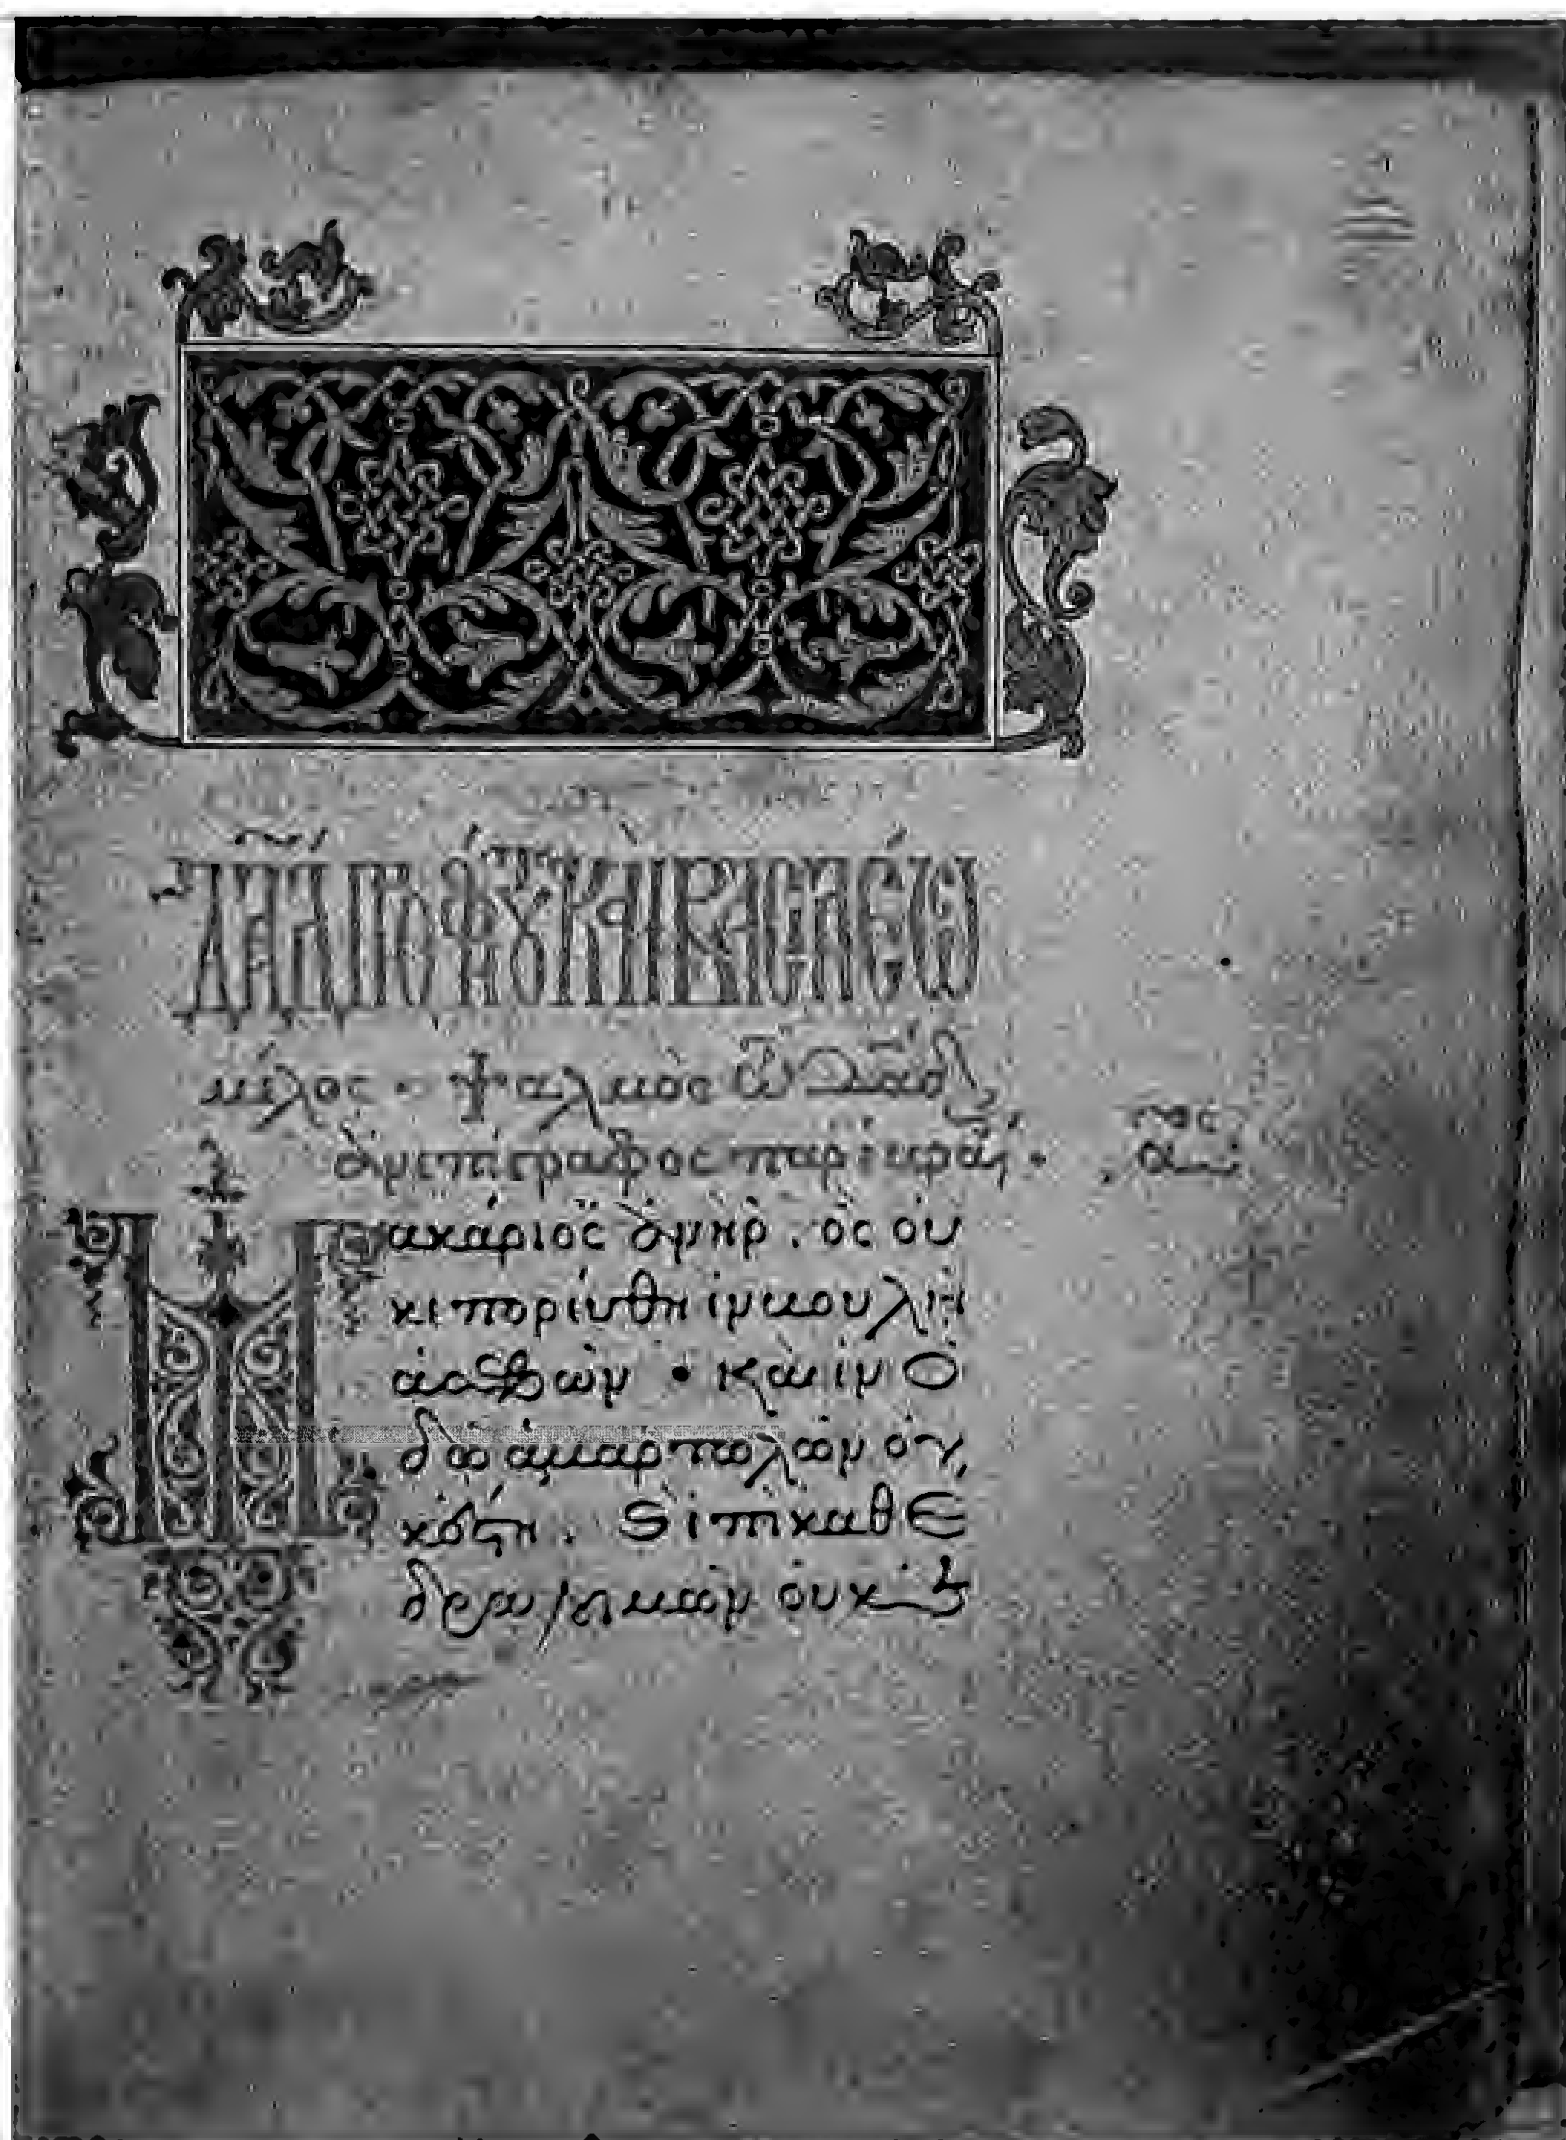 ΔΑΔ ΠΡΟΦΗΤΟΥ ΚΑΙ ΒΑΣΙΛΕΩ
μέλος · ψαλμὸς τῶ δαδ
ἀνεπίγραφος παρ
Μακάριος ἀνὴρ, ὃς οὐ
κ ἐπορεύθη ἐν βουλῆ
ἀσεβῶν · καὶ ἐν ὁ
δῶ ἁμαρτωλῶν οὐ
κ ἔστη. ἐπὶ καθέ
δρα λοιμῶν οὐκ